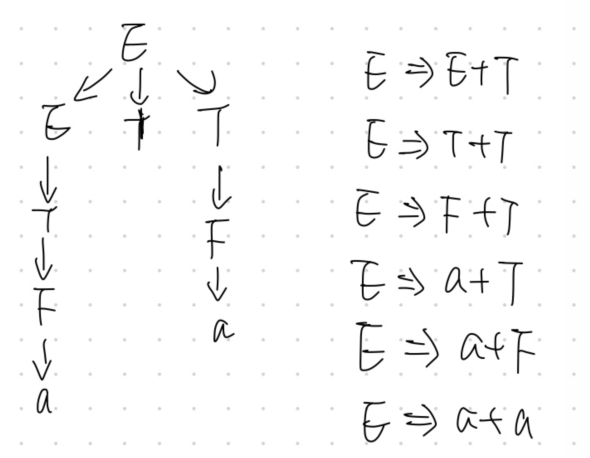 E
E + T
T F
F a
a
E ⇒ E+T
E ⇒ T+T
E ⇒ F+T
E ⇒ a+T
E ⇒ a+F
E ⇒ a+a